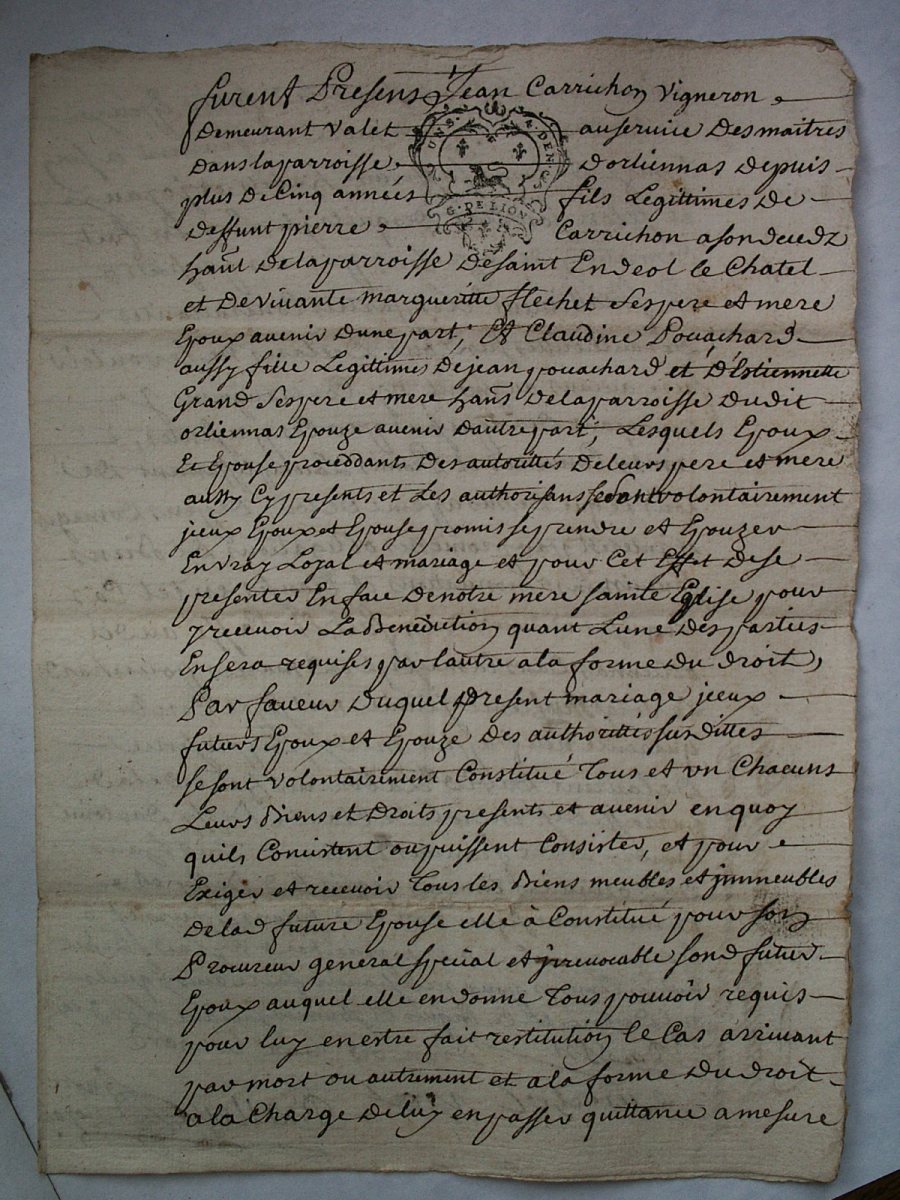 furent Presens Jean Carrichon Vigneron
Demeurant Valet au service Des maitres
Dans la parroisse D'orliennas Depuis
plus De Cinq années fils Legittimes De
Deffunt pierre Carrichon a son decedz
hant De la parroisse De saint Endeol le Chatel
et De Vivante margueritte flechet Ses pere et mere
Epoux avenir Dune part, Et Claudine Pouachard
aussy fille Legittimes De jean pouachard et D'Estiennette
Grand Ses pere et mere hans De la parroisse Dudit
orliennas Epouze avenir Dautre part, Lesquels Epoux
Et Epouse proceddants Des autorittés De leurs pere et mere
aussy Cy presents et Les authorisans se sont volontairement
jceux Epoux et Epouse promis se prendre et Epouzer
En vray Loyal et mariage et pour Cet Effet De se
presenter En face De notre mere sainte Eglise pour
y recevoir La Benediction quant Lune Des parties
En sera requises par lautre a la forme Du Droit,
Par faveur Duquel present mariage jceux
futurs Epoux et Epouze Des authorittés sus Dittes
se sont volontairement Constitué Tous et vn Chacuns
Leurs Biens et Droits presents et avenir en quoy
quils Concistent ou puissent Consister, et pour
Exiger et recevoir Tous les Biens meubles et jmmeubles
De lad future Epouse elle à Constitué pour son
Procureur general special et jrrevocable son d futur
Epoux auquel elle en donne Tous pouvoir requis
pour luy en estre fait restitution le Cas arrivant
par mort ou autrement et a la forme Du Droit
a la Charge De luy en passer quittance a mesure
G. DE LION